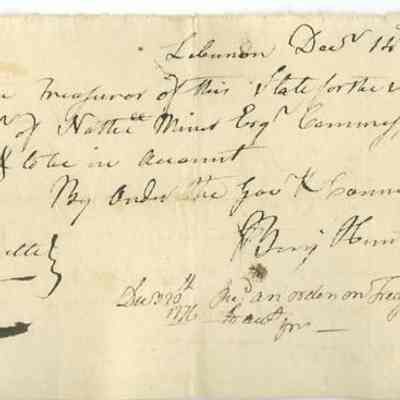 Lebanon Decr 14
Treasurer of this State for the
of Nathll Miner Esqr Commiss
to be in Account
By Order the Govr & Counc
Benj Hun
Dec 30th
1776
Recd an order on Trea
to act for